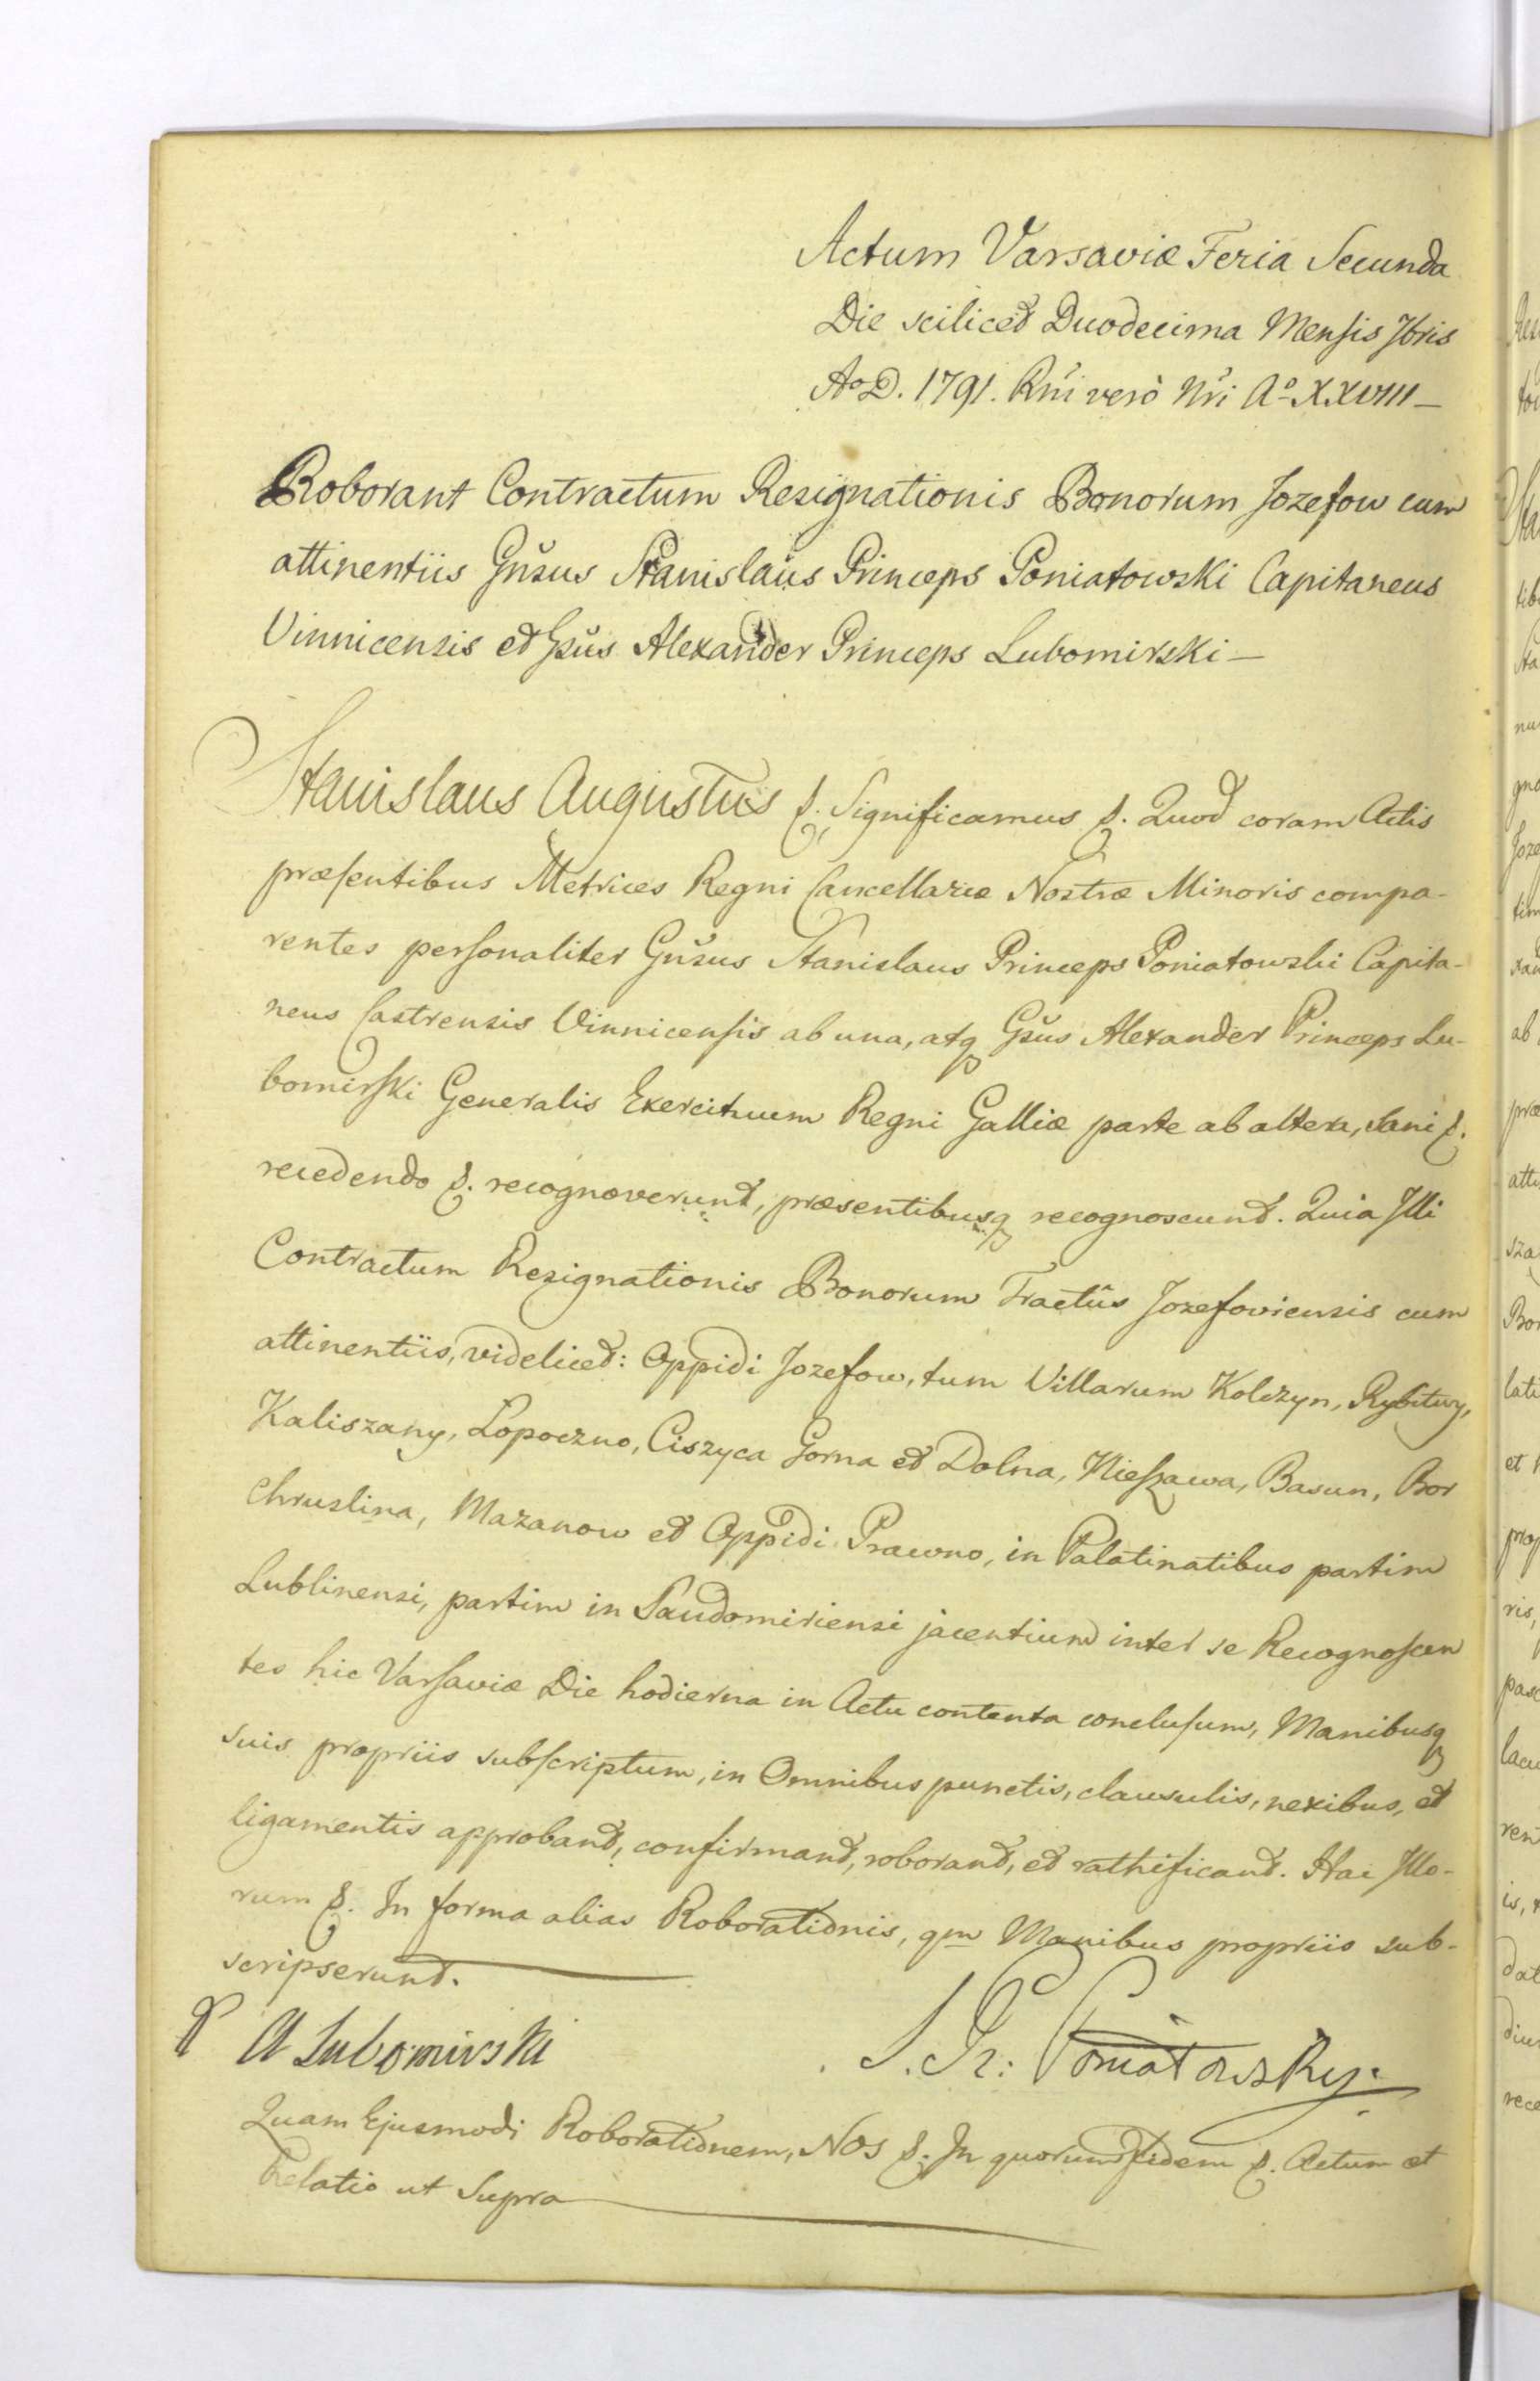 Actum Varsaviæ Feria Secunda
Die scilicet Duodecima Mensis 7bris
AoD. 1791. Rni verò Nri Ao XXVIII—
Roborant Contractum Resignationis Bonorum Jozefow cum
attinentiis Gnsus Stanislaus Princeps Poniatowski Capitaneus
Vinnicensis et Gsus Alexander Princeps Lubomirski—
Stanislaus Augustus &. Significamus &. Quod coram Actis
præsentibus Metrices Regni Cancellariæ Nostræ Minoris compa-
rentes personaliter Gnsus Stanislaus Princeps Poniatowski Capita-
neus Castrensis Vinnicensis ab una, atq Gsus Alexander Princeps Lu-
bomirski Generalis Exercituum Regni Galliæ parte ab altera, sani &.
recedendo &. recognoverunt, præsentibusq recognoscunt. Quia Illi
Contractum Resignationis Bonorum Tractûs Jozefoviensis cum
attinentiis, videlicet: Oppidi Jozefow, tum Villarum Kolczyn, Rybitwy,
Kaliszany, Lopoczno, Ciszyca Gorna et Dolna, Nieszawa, Basun, Bor
Chruslina, Mazanow et Oppidi Prawno, in Palatinatibus partim
Lublinensi, partim in Sandomiriensi jacentium inter se Recognoscen
tes hic Varsaviæ Die hodierna in Actu contenta conclusum, Manibusq
suis propriis subscriptum, in Omnibus punctis, clausulis, nexibus, et
ligamentis approbant, confirmant, roborant, et rathificant. Hac Illo-
rum &. In forma alias Roborationis, qm Manibus propriis sub-
scripserunt.
A Lubomirski
S. Pr: Poniatowsky.
Quam Ejusmodi Roborationem, NOS &. In quorum fidem &. Actum et
Relatio ut Supra